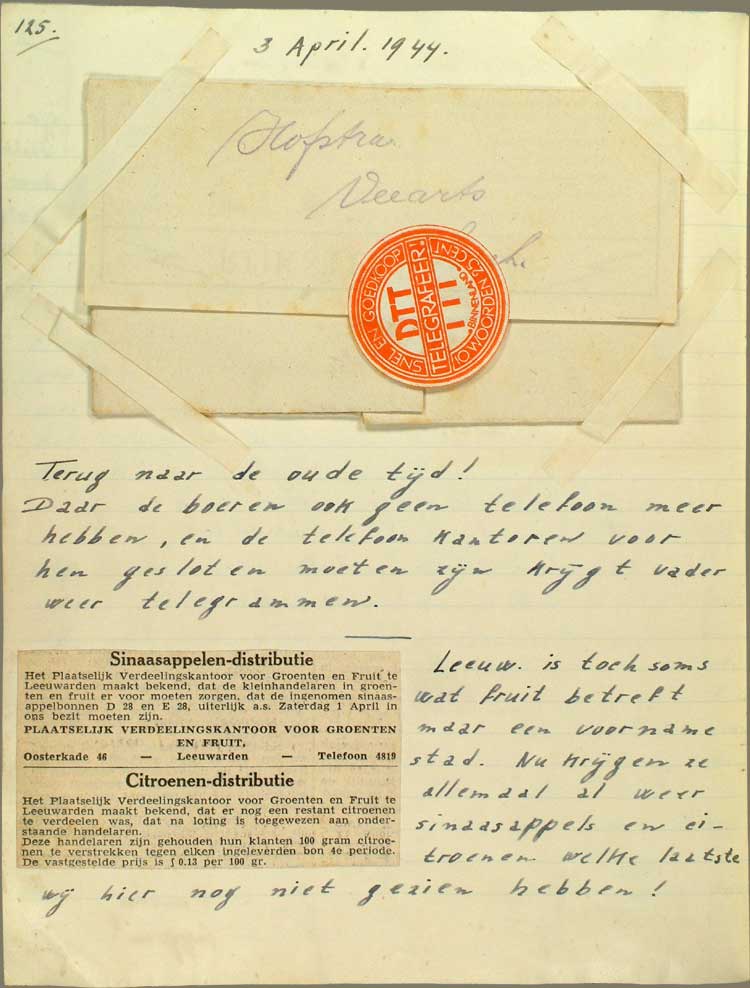 125.
3 April. 1944.
Hofstra
Veearts
SNEL EN GOEDKOOP
DTT
TELEGRAFEER!
TTT
BINNENLAND
10 WOORDEN 25 CENT
Terug naar de oude tijd!
Daar de boeren ook geen telefoon meer
hebben, en de telefoon kantoren voor
hen gesloten moeten zijn krijgt vader
weer telegrammen.
Sinaasappelen-distributie
Het Plaatselijk Verdeelingskantoor voor Groenten en Fruit te
Leeuwarden maakt bekend, dat de kleinhandelaren in groen-
ten en fruit er voor moeten zorgen, dat de ingenomen sinaas-
appelbonnen D 28 en E 28, uiterlijk a.s. Zaterdag 1 April in
ons bezit moeten zijn.
PLAATSELIJK VERDEELINGSKANTOOR VOOR GROENTEN
EN FRUIT,
Oosterkade 46 — Leeuwarden — Telefoon 4819
Citroenen-distributie
Het Plaatselijk Verdeelingskantoor voor Groenten en Fruit te
Leeuwarden maakt bekend, dat er nog een restant citroenen
te verdeelen was, dat na loting is toegewezen aan onder-
staande handelaren.
Deze handelaren zijn gehouden hun klanten 100 gram citroe-
nen te verstrekken tegen elken ingeleverden bon 4e periode.
De vastgestelde prijs is ƒ 0.13 per 100 gr.
Leeuw. is toch soms
wat fruit betreft
maar een voorname
stad. Nu krijgen ze
allemaal al weer
sinaasappels en ci-
troenen welke laatste
wij hier nog niet gezien hebben!